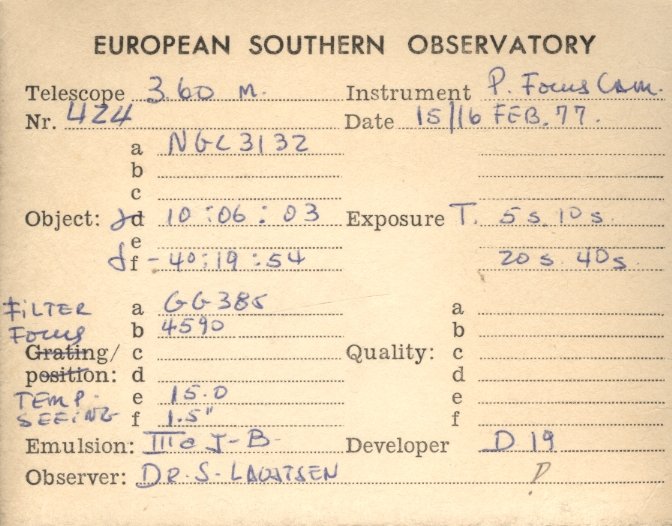 EUROPEAN SOUTHERN OBSERVATORY
Telescope 3.60 m. Instrument P. Focus Cam.
Nr. 424 Date 15/16 FEB. 77.
a NGC 3132
b
c
Object: d 10:06:03 Exposure T. 5s 10s.
e
f -40:19:54 20s 40s
FILTER a GG385 a
Focus b 4590 b
Grating/ c Quality: c
position: d d
TEMP. e 15.0 e
SEEING f 1.5" f
Emulsion: IIIa J-B- Developer D19
Observer: DR. S. LAUSTSEN